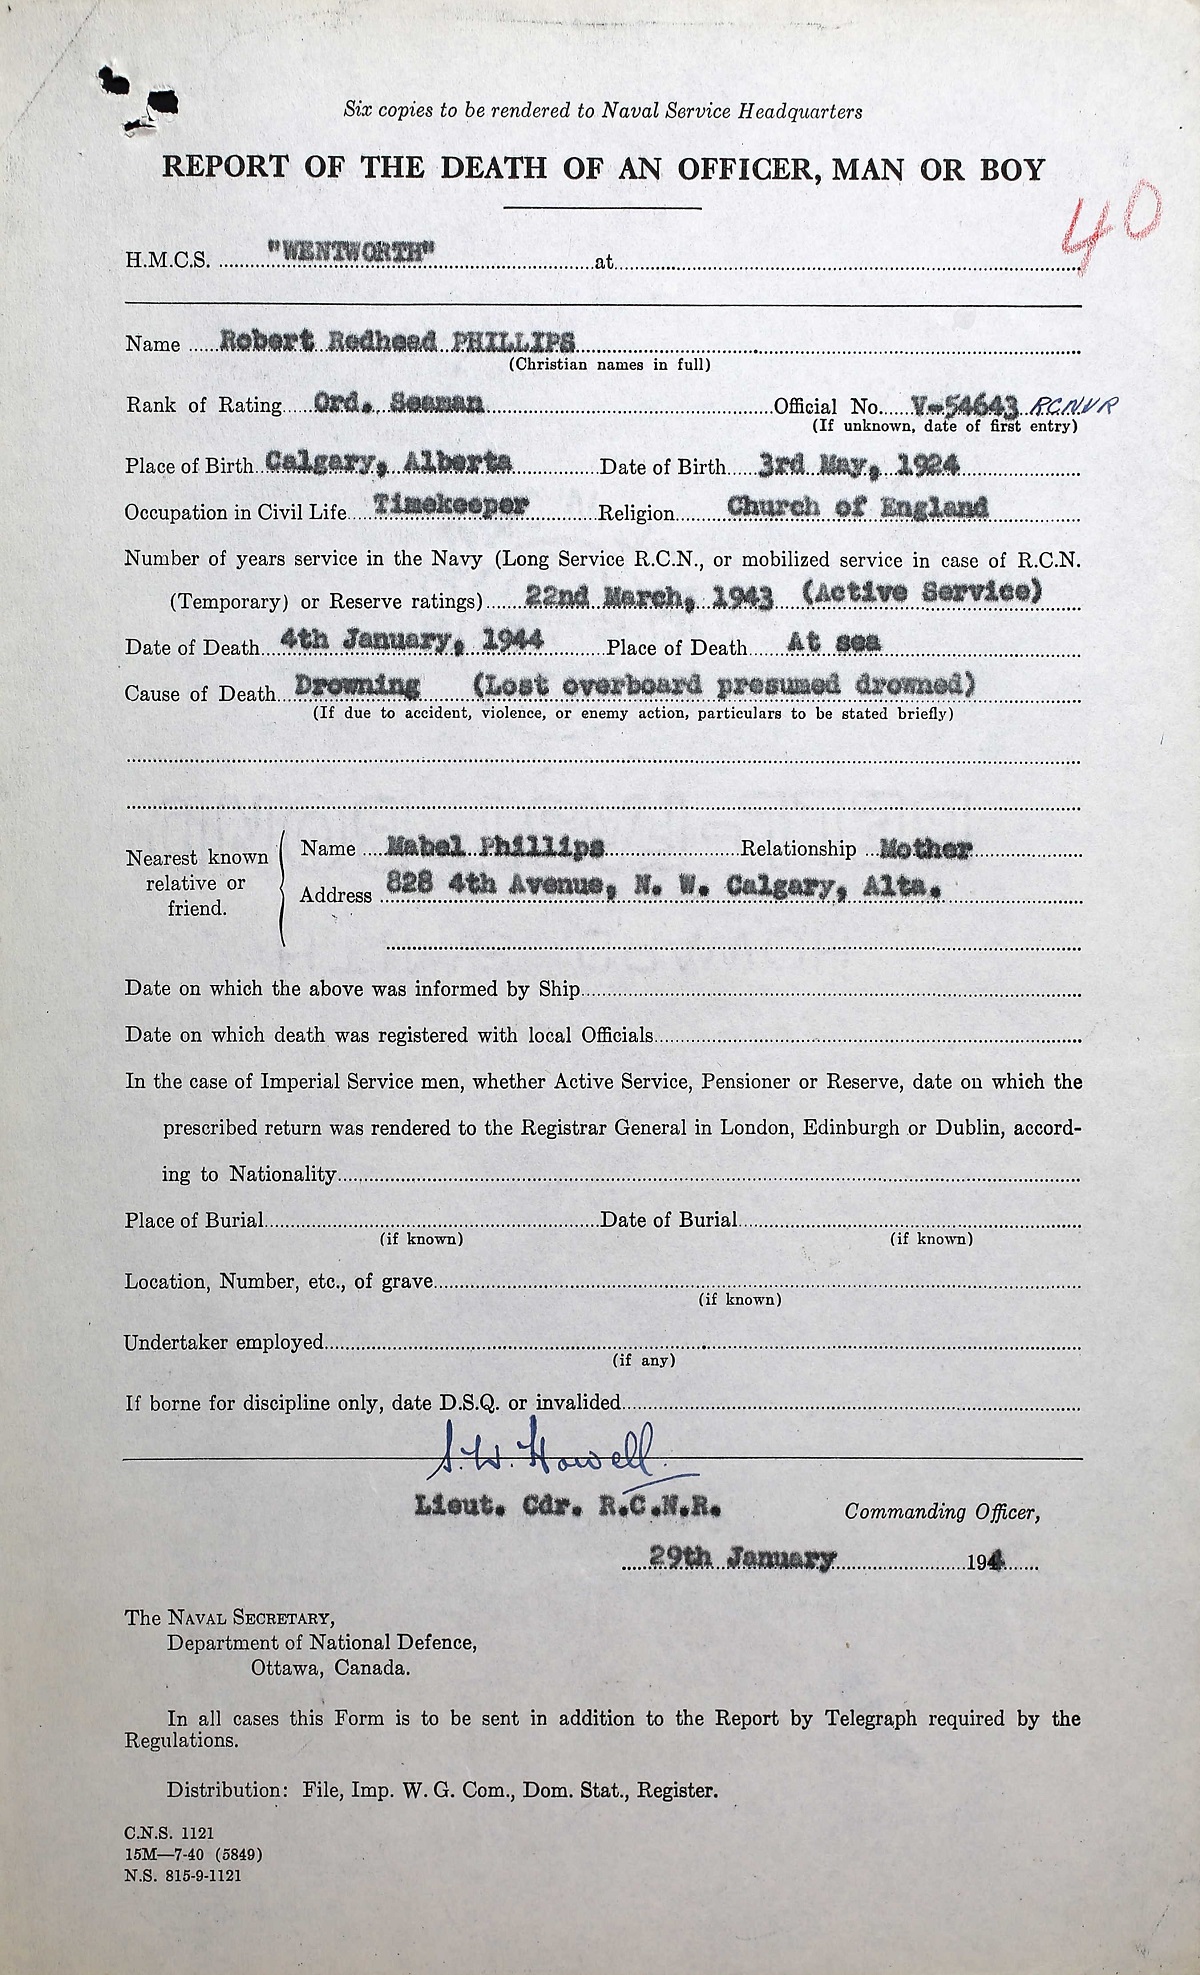 Six copies to be rendered to Naval Service Headquarters
REPORT OF THE DEATH OF AN OFFICER, MAN OR BOY
40
H.M.C.S. "WENTWORTH" at
Name Robert Redhead PHILLIPS
(Christian names in full)
Rank of Rating Ord. Seaman Official No. V-54643 RCNVR
(If unknown, date of first entry)
Place of Birth Calgary, Alberta Date of Birth 3rd May, 1924
Occupation in Civil Life Timekeeper Religion Church of England
Number of years service in the Navy (Long Service R.C.N., or mobilized service in case of R.C.N.
(Temporary) or Reserve ratings) 22nd March, 1943 (Active Service)
Date of Death 4th January, 1944 Place of Death At sea
Cause of Death Drowning (Lost overboard presumed drowned)
(If due to accident, violence, or enemy action, particulars to be stated briefly)
Nearest known relative or friend. Name Mabel Phillips Relationship Mother
Address 828 4th Avenue, N. W. Calgary, Alta.
Date on which the above was informed by Ship
Date on which death was registered with local Officials
In the case of Imperial Service men, whether Active Service, Pensioner or Reserve, date on which the
prescribed return was rendered to the Registrar General in London, Edinburgh or Dublin, accord-
ing to Nationality
Place of Burial Date of Burial
(if known) (if known)
Location, Number, etc., of grave
(if known)
Undertaker employed
(if any)
If borne for discipline only, date D.S.Q. or invalided
S.W. Howell
Lieut. Cdr. R.C.N.R. Commanding Officer,
29th January 1944
The NAVAL SECRETARY,
Department of National Defence,
Ottawa, Canada.
In all cases this Form is to be sent in addition to the Report by Telegraph required by the
Regulations.
Distribution: File, Imp. W. G. Com., Dom. Stat., Register.
C.N.S. 1121
15M—7-40 (5849)
N.S. 815-9-1121